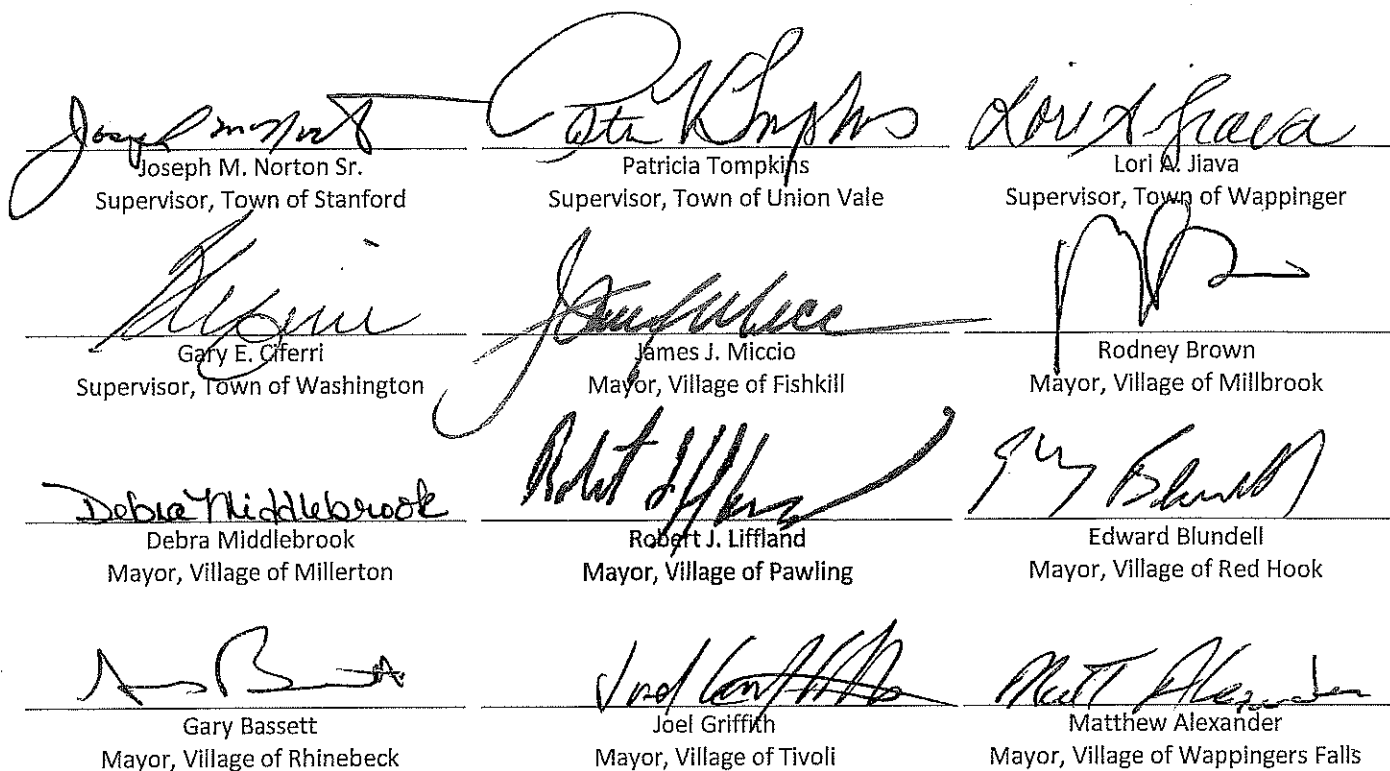 Joseph M. Norton Sr.
Supervisor, Town of Stanford
Patricia Tompkins
Supervisor, Town of Union Vale
Lori A. Jiava
Supervisor, Town of Wappinger
Gary E. Ciferri
Supervisor, Town of Washington
James J. Miccio
Mayor, Village of Fishkill
Rodney Brown
Mayor, Village of Millbrook
Debra Middlebrook
Debra Middlebrook
Mayor, Village of Millerton
Robert J. Liffland
Mayor, Village of Pawling
Edward Blundell
Mayor, Village of Red Hook
Gary Bassett
Mayor, Village of Rhinebeck
Joel Griffith
Mayor, Village of Tivoli
Matt Alexander
Matthew Alexander
Mayor, Village of Wappingers Falls